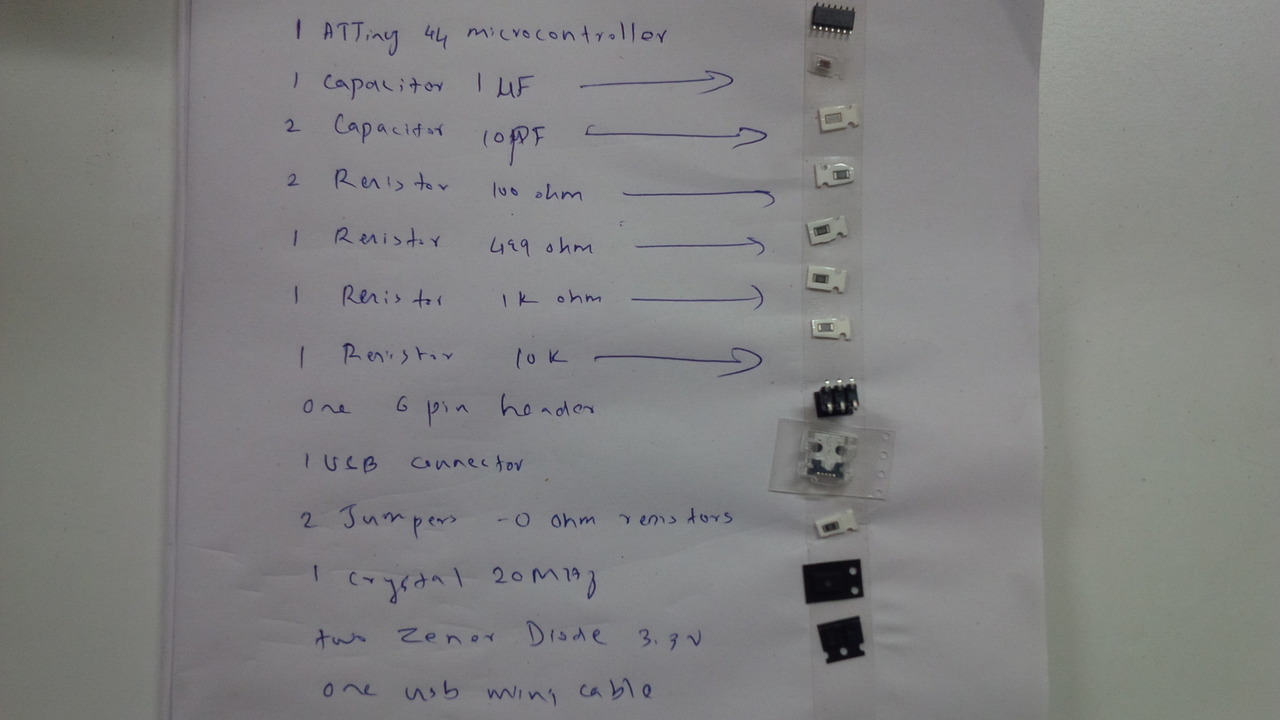 1 ATTiny 44 microcontroller
1 Capacitor 1 µF
2 Capacitor 10 PF
2 Resistor 100 ohm
1 Resistor 499 ohm
1 Resistor 1K ohm
1 Resistor 10K
one 6 pin header
1 USB connector
2 Jumpers - 0 ohm resistors
1 crystal 20MHz
two Zenor Diode 3.3V
one usb mini cable